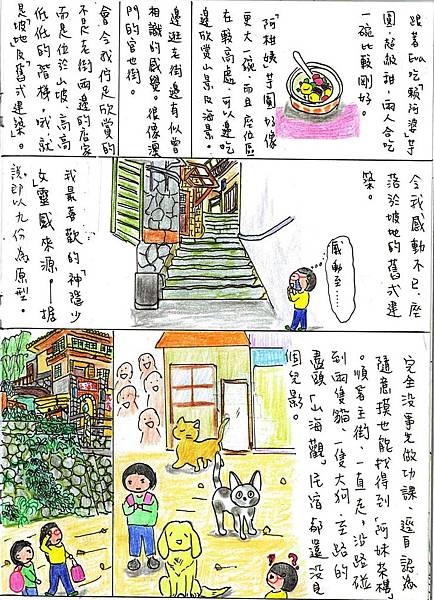 跟著EVA吃「賴阿婆」芋
圓,超級甜,兩人合吃
一碗比較剛好。
「阿柑姨」芋圓好像
更大一碗,而且座位區
在較高處,可以邊吃
邊欣賞山景及海景。
邊逛老街邊有似曾
相識的感覺。很像澳
門的官也街。
會令我佇足欣賞的
不只老街兩邊的店家
而是位於山坡,高高
低低的階梯。我就
是坡地及舊式建築。
令我感動不已,座
落於坡地的舊式建
築。
感動至……
我最喜歡的「神隱少
女」靈感來源——據
說即以九份為原型。
完全沒事先做功課,逕自認為
隨意摸也能找得到「阿妹茶樓」
。順著主街一直走,沿路碰
到兩隻貓、一隻大狗,至路的
盡頭「山海觀」民宿都還沒見
個兒影。
? ?